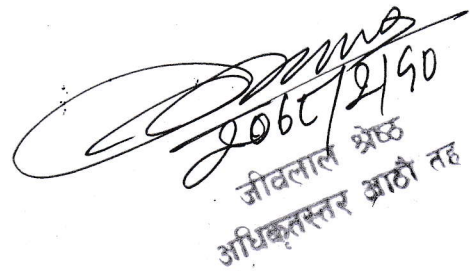 २०६८/२/१०
जीवलाल श्रेष्ठ
अधिकृतस्तर आठौ तह